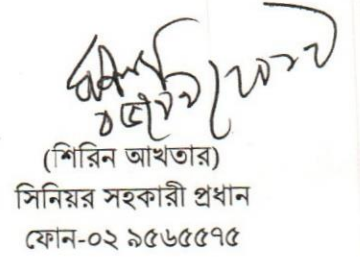 (শিরিন আখতার)
সিনিয়র সহকারী প্রধান
ফোন-০২ ৯৫৬৫৫৭৫